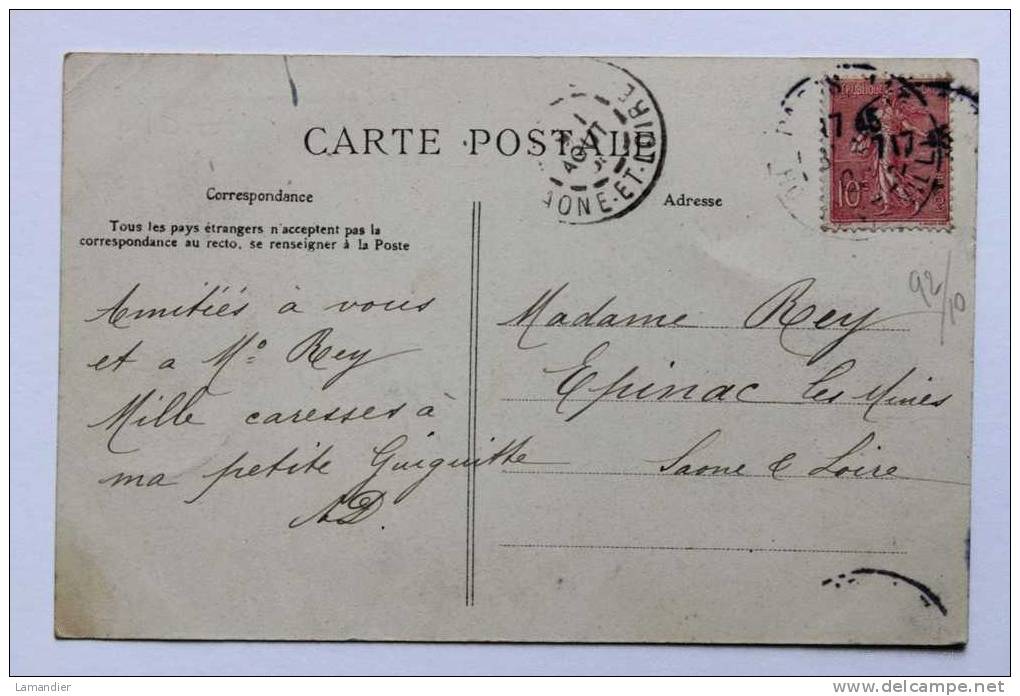 CARTE POSTALE
1
AOUT
ONE-ET-LOIRE
Correspondance
Adresse
Tous les pays étrangers n'acceptent pas la
correspondance au recto, se renseigner à la Poste
10c
92/10
Amitiés à vous
et a Mo Rey
Mille caresses à
ma petite Guiguitte
AD.
Madame Rey
Epinac les Mines
Saone & Loire
Lamandier
www.delcampe.net